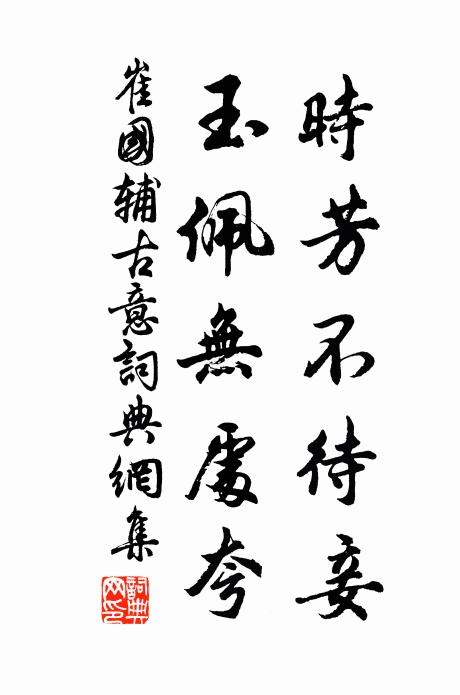 時芳不待妾
玉佩無處夸
崔國輔古意詞典網集
詞典网印